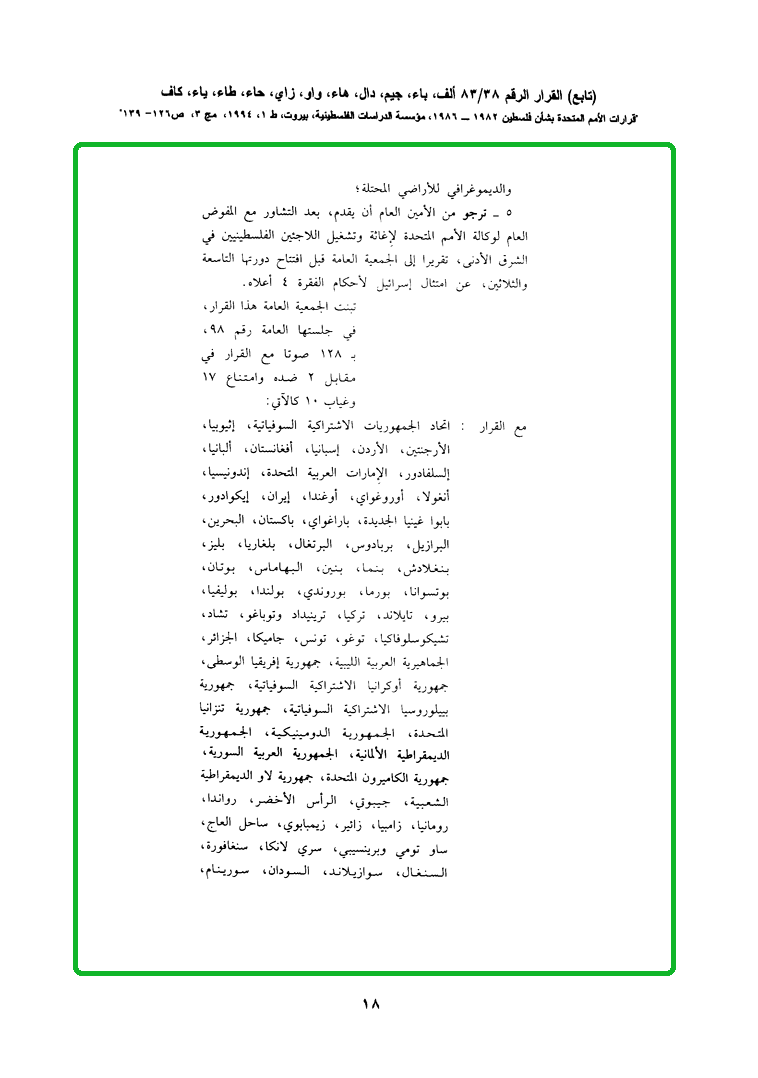 (تابع) القرار الرقم ٨٣/٣٨ ألف، باء، جيم، دال، هاء، واو، زاي، حاء، طاء، ياء، كاف
"قرارات الأمم المتحدة بشأن فلسطين ١٩٨٢ ــ ١٩٨٦، مؤسسة الدراسات الفلسطينية، بيروت، ط ١، ١٩٩٤، مج ٣، ص١٢٦– ١٣٩"
والديموغرافي للأراضي المحتلة؛
٥ ــ ترجو من الأمين العام أن يقدم، بعد التشاور مع المفوض
العام لوكالة الأمم المتحدة لإغاثة وتشغيل اللاجئين الفلسطينيين في
الشرق الأدنى، تقريرا إلى الجمعية العامة قبل افتتاح دورتها التاسعة
والثلاثين، عن امتثال إسرائيل لأحكام الفقرة ٤ أعلاه.
تبنت الجمعية العامة هذا القرار،
في جلستها العامة رقم ٩٨،
بـ ١٢٨ صوتا مع القرار في
مقابل ٢ ضده وامتناع ١٧
وغياب ١٠ كالآتي:
مع القرار : اتحاد الجمهوريات الاشتراكية السوفياتية، إثيوبيا،
الأرجنتين، الأردن، إسبانيا، أفغانستان، ألبانيا،
إلسلفادور، الإمارات العربية المتحدة، إندونيسيا،
أنغولا، أوروغواي، أوغندا، إيران، إيكوادور،
بابوا غينيا الجديدة، باراغواي، باكستان، البحرين،
البرازيل، بربادوس، البرتغال، بلغاريا، بليز،
بنغلادش، بنما، بنين، البهاماس، بوتان،
بوتسوانا، بورما، بوروندي، بولندا، بوليفيا،
بيرو، تايلاند، تركيا، ترينيداد وتوباغو، تشاد،
تشيكوسلوفاكيا، توغو، تونس، جاميكا، الجزائر،
الجماهيرية العربية الليبية، جمهورية إفريقيا الوسطى،
جمهورية أوكرانيا الاشتراكية السوفياتية، جمهورية
بييلوروسيا الاشتراكية السوفياتية، جمهورية تنزانيا
المتحدة، الجمهورية الدومينيكية، الجمهورية
الديمقراطية الألمانية، الجمهورية العربية السورية،
جمهورية الكاميرون المتحدة، جمهورية لاو الديمقراطية
الشعبية، جيبوتي، الرأس الأخضر، رواندا،
رومانيا، زامبيا، زائير، زيمبابوي، ساحل العاج،
ساو تومي وبرينسيبي، سري لانكا، سنغافورة،
السنغال، سوازيلاند، السودان، سورينام،
١٨